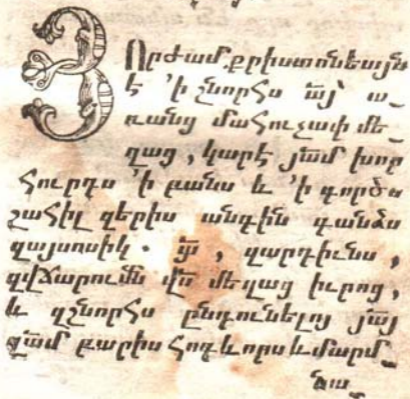 Յորժամ քրիստոնեայն
է ՚ի շնորհս ա՟յ ա_
ռանց մահու չափ մե_
ղաց, կարէ յ՟ամ խոր
հուրդս ՚ի բանս և ՚ի գործս
շահիլ զերիս անգին գանձս
զայսոսիկ.
, զարդիւնս,
զվճարումն վ՟ս մեղաց իւրոց,
և զշնորհս ընդունելոյ յ՟այ
զ՟ամ բարիս հոգևորս և մարմ_
նա_